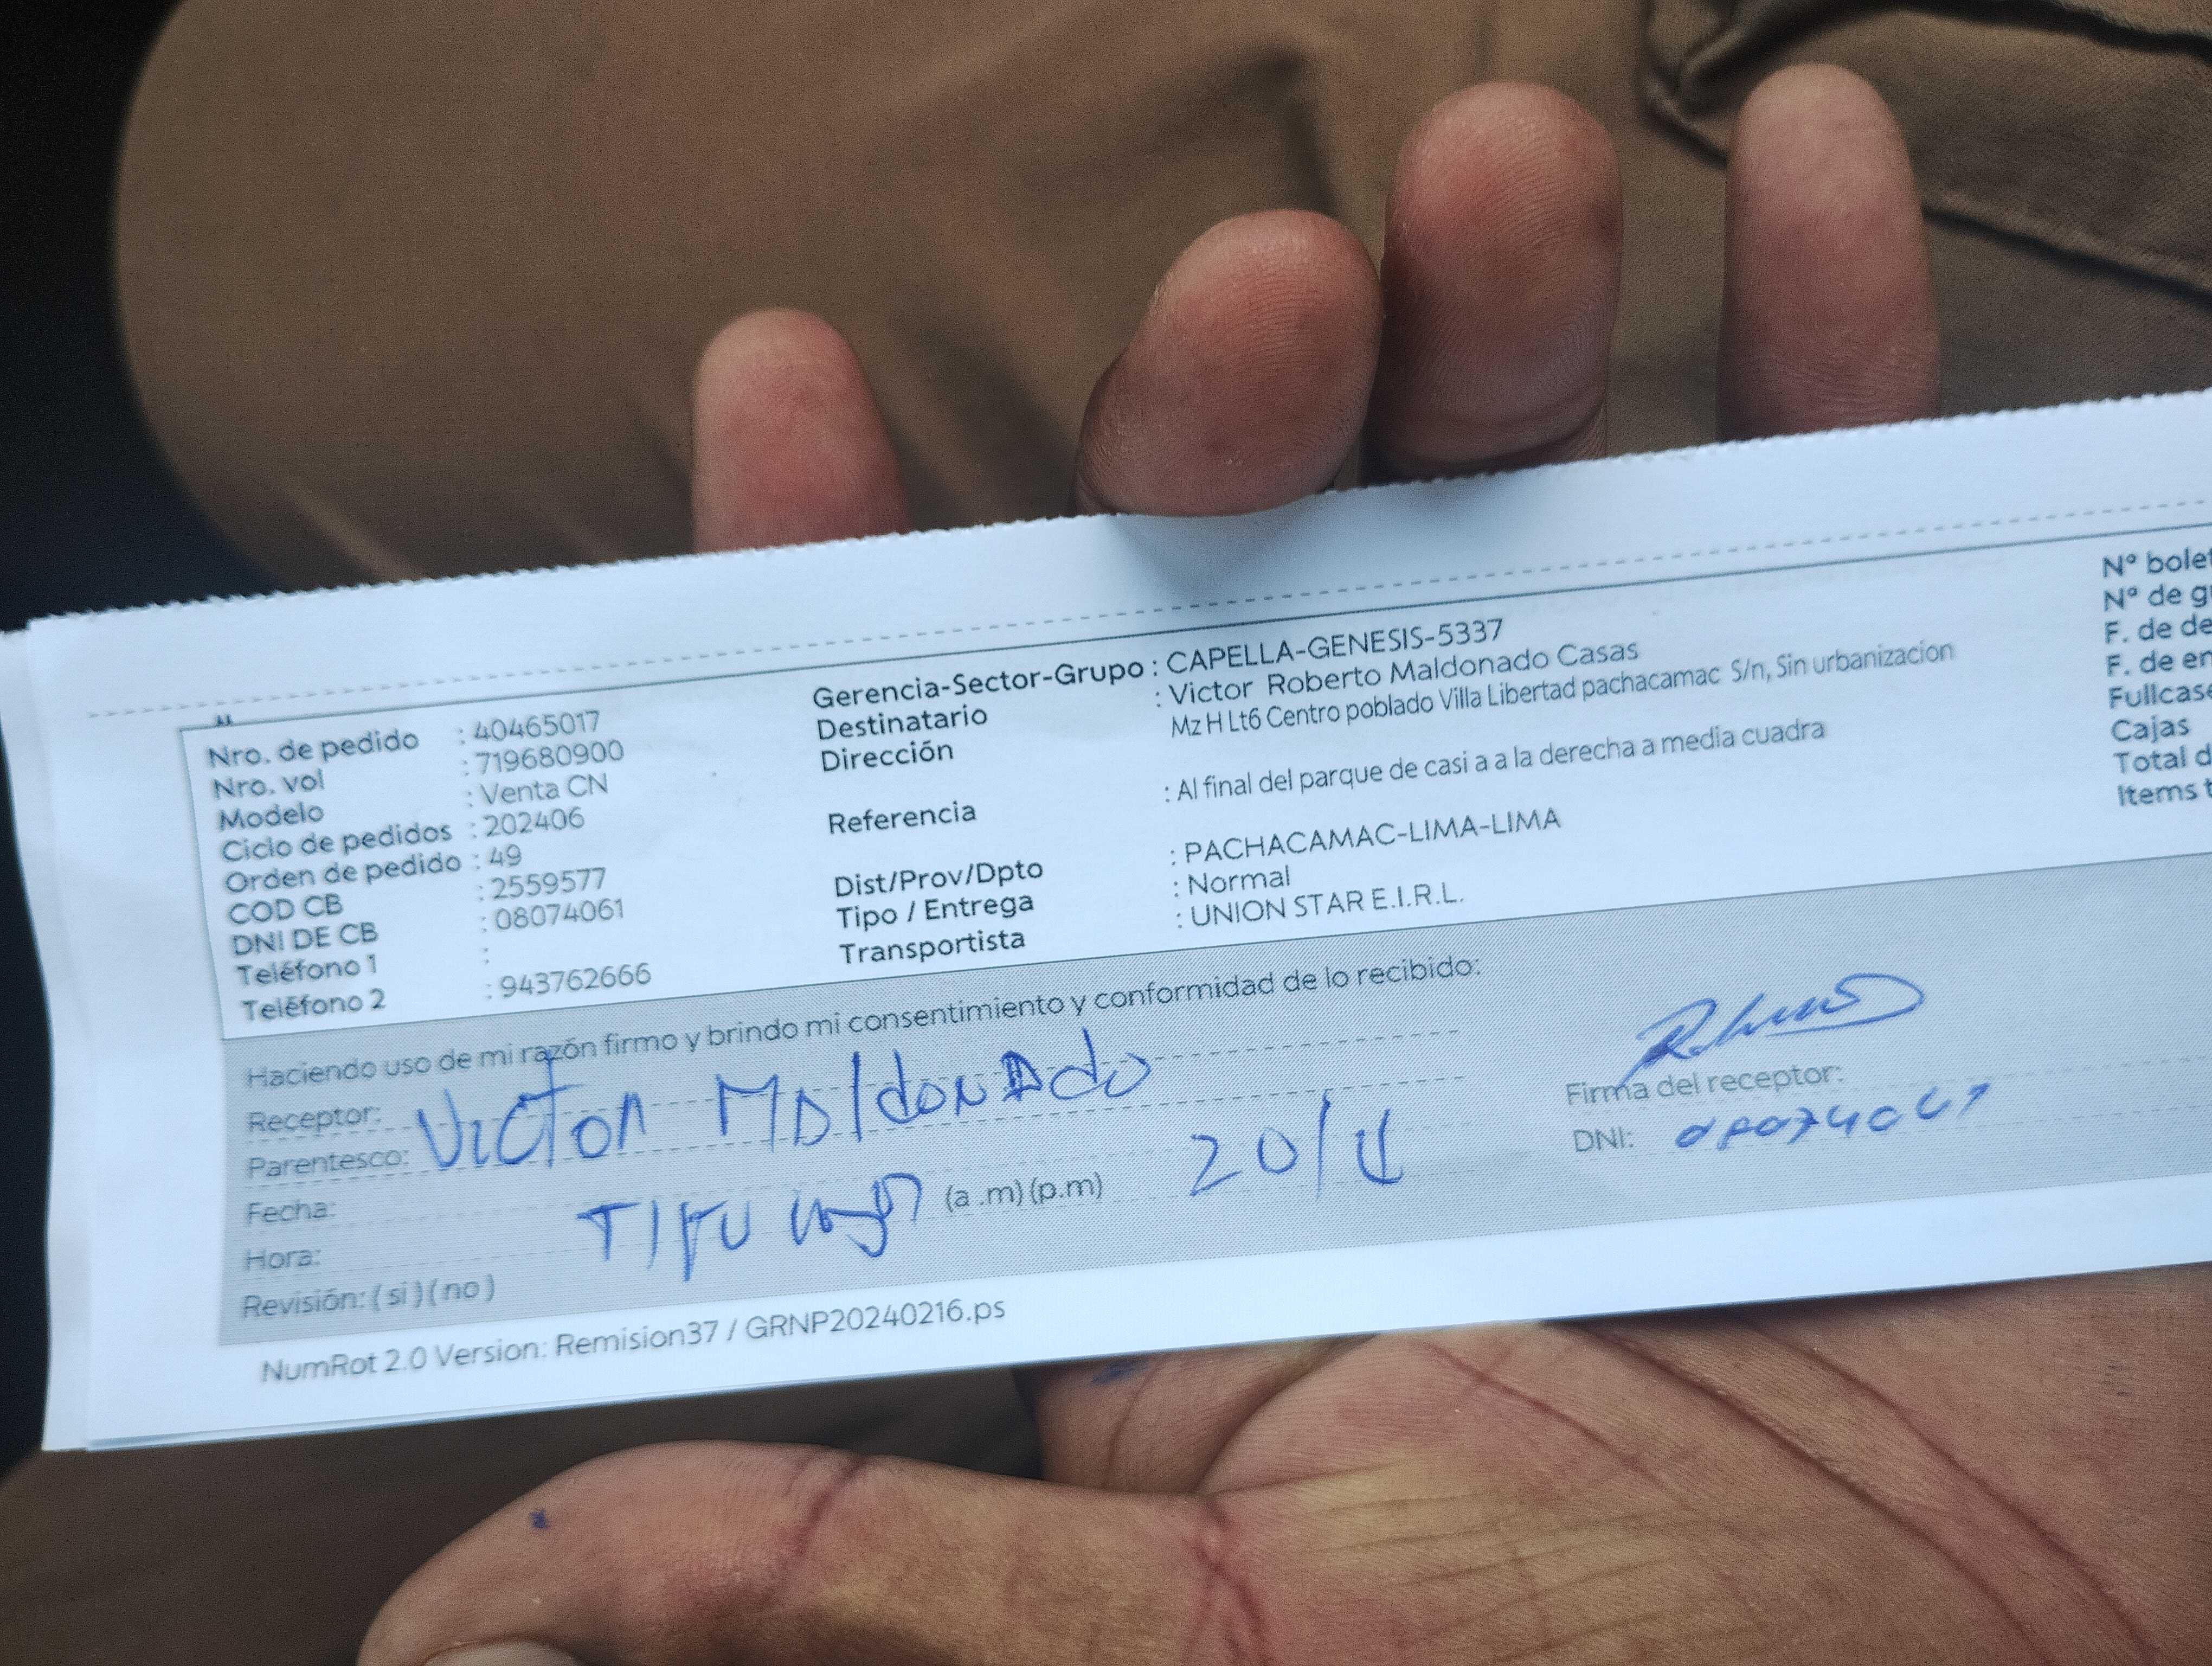 Nro. de pedido : 40465017
Nro. vol : 719680900
Modelo : Venta CN
Ciclo de pedidos : 202406
Orden de pedido : 49
COD CB : 2559577
DNI DE CB : 08074061
Teléfono 1 :
Teléfono 2 : 943762666
Gerencia-Sector-Grupo : CAPELLA-GENESIS-5337
Destinatario : Victor Roberto Maldonado Casas
Dirección Mz H Lt6 Centro poblado Villa Libertad pachacamac S/n, Sin urbanizacion
Referencia : Al final del parque de casi a a la derecha a media cuadra
Dist/Prov/Dpto : PACHACAMAC-LIMA-LIMA
Tipo / Entrega : Normal
Transportista : UNION STAR E.I.R.L.
Nº bolet
Nº de gu
F. de de
F. de en
Fullcase
Cajas
Total d
Items t
Haciendo uso de mi razón firmo y brindo mi consentimiento y conformidad de lo recibido:
Receptor: VICTOR MALdONADO
Parentesco:
Fecha:
Hora: (a .m) (p.m) 20/
Revisión: ( si ) ( no )
Firma del receptor:
DNI: 08074061
NumRot 2.0 Version: Remision37 / GRNP20240216.ps